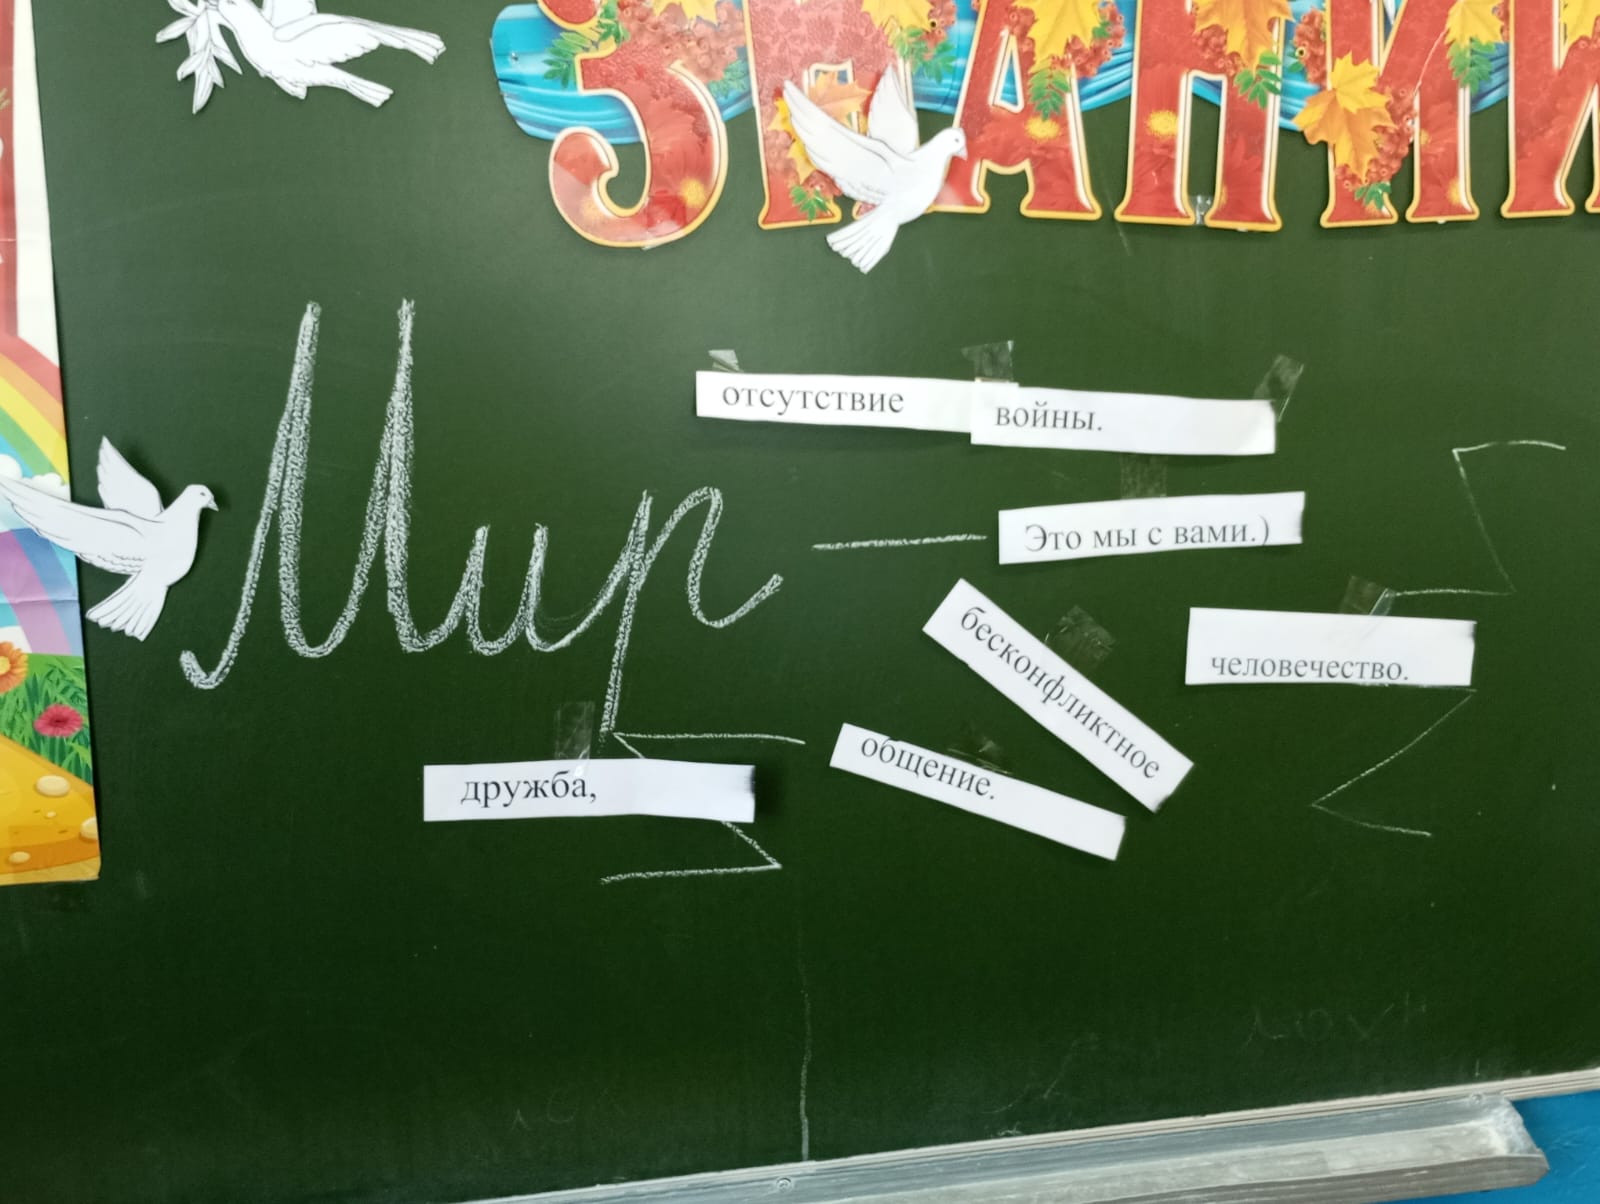 ЗНАНИ
Мир —
отсутствие войны.
Это мы с вами.)
бесконфликтное
общение.
человечество.
дружба,